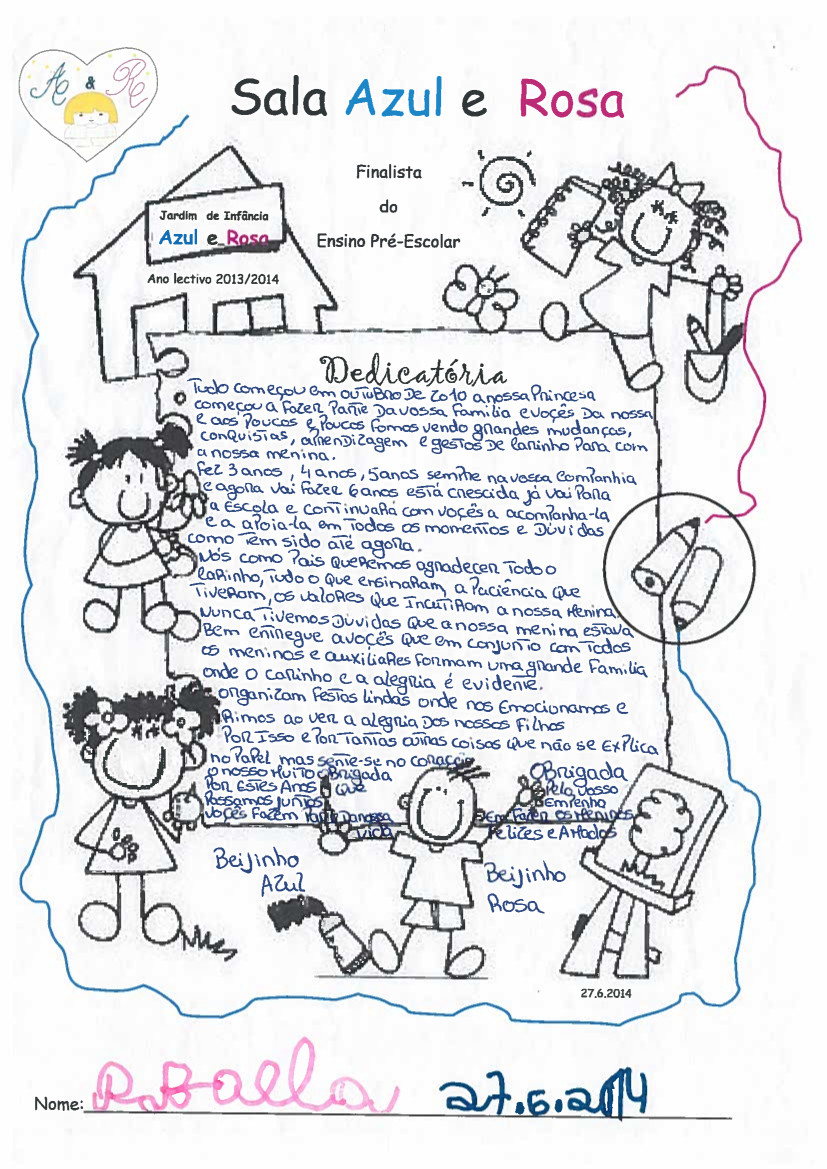 A & R
Sala Azul e Rosa
Finalista
do
Ensino Pré-Escolar
Jardim de Infância
Azul e Rosa
Ano lectivo 2013/2014
Dedicatória
Tudo começou em outubro de 2010 a nossa Princesa
começou a fazer Parte da vossa Familia e voçês da nossa
e aos Poucos e Poucos fomos vendo grandes mudanças,
conquistas, aprendizagem e gestos de carinho Para com
a nossa menina.
Fez 3 anos, 4 anos, 5 anos sempre na vossa companhia
e agora vai fazer 6 anos está crescida já vai Para
a Escola e continuará com voçês a acompanha-la
e a apoia-la em todos os momentos e Dúvidas
como têm sido até agora.
Nós como Pais queremos agradecer todo o
carinho, tudo o que ensinaram, a Paciência que
tiveram, os valores que incutiram a nossa menina
Nunca tivemos Dúvidas que a nossa menina estava
Bem entregue a voçês que em conjunto com todos
os meninos e auxiliares formam uma grande Familia
onde o carinho e a alegria é evidente.
organizam festas lindas onde nos Emocionamos e
Rimos ao ver a alegria dos nossos filhos
Por isso e Por tantas outras coisas que não se explica
no Papel mas sente-se no coração
o nosso Muito Obrigada
Por Estes Anos que
Passamos Juntos
voçês fazem Parte da nossa
vida
OBrigada
Pelo vosso
Empenho
Em fazer os Meninos
Felizes e Amados
Beijinho
Azul
Beijinho
Rosa
27.6.2014
Nome:
27.6.2014